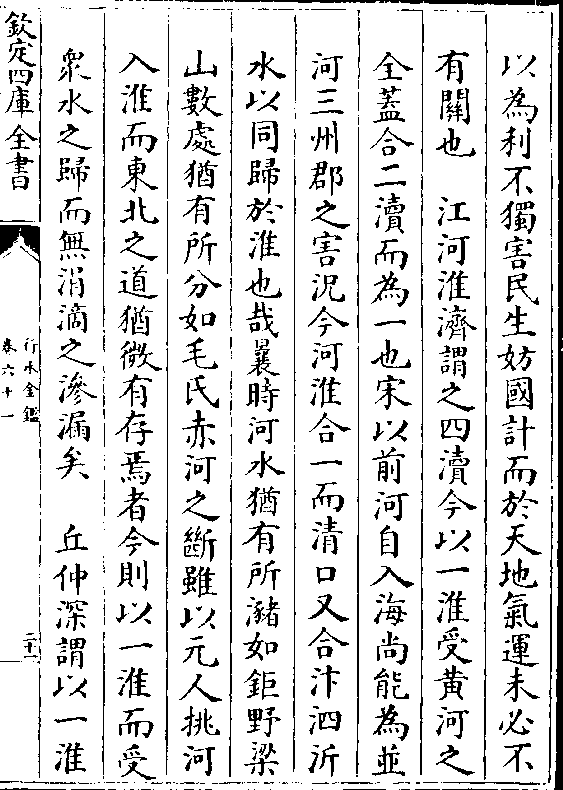 以為利不獨害民生妨國計而於天地氣運未必不
有關也　江河淮濟謂之四瀆今以一淮受黄河之
全蓋合二瀆而為一也宋以前河自入海尚能為並
河三州郡之害况今河淮合一而清口又合汴泗沂
水以同歸於淮也哉曩時河水猶有所瀦如鉅野梁
山數處猶有所分如毛氏赤河之斷雖以元人挑河
入淮而東北之道猶微有存焉者今則以一淮而受
衆水之歸而無涓滴之滲漏矣　丘仲深謂以一淮
欽定四庫全書
行水金鑑
卷六十一
二十二